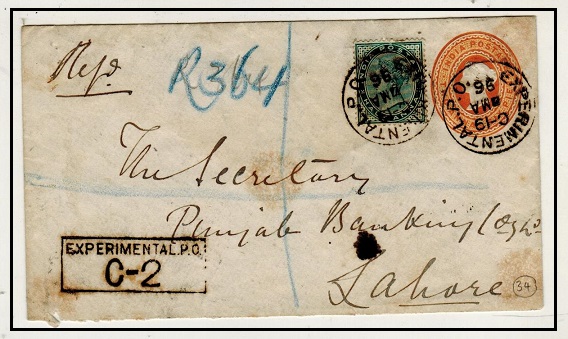 Regd.
R364
INDIA POSTAGE
EXPERIMENTAL P.O.
C-19
MA
96
EXPERIMENTAL P.O.
MA
96
The Secretary
Punjab Banking Coy Ld
Lahore
EXPERIMENTAL.P.O.
C-2
34